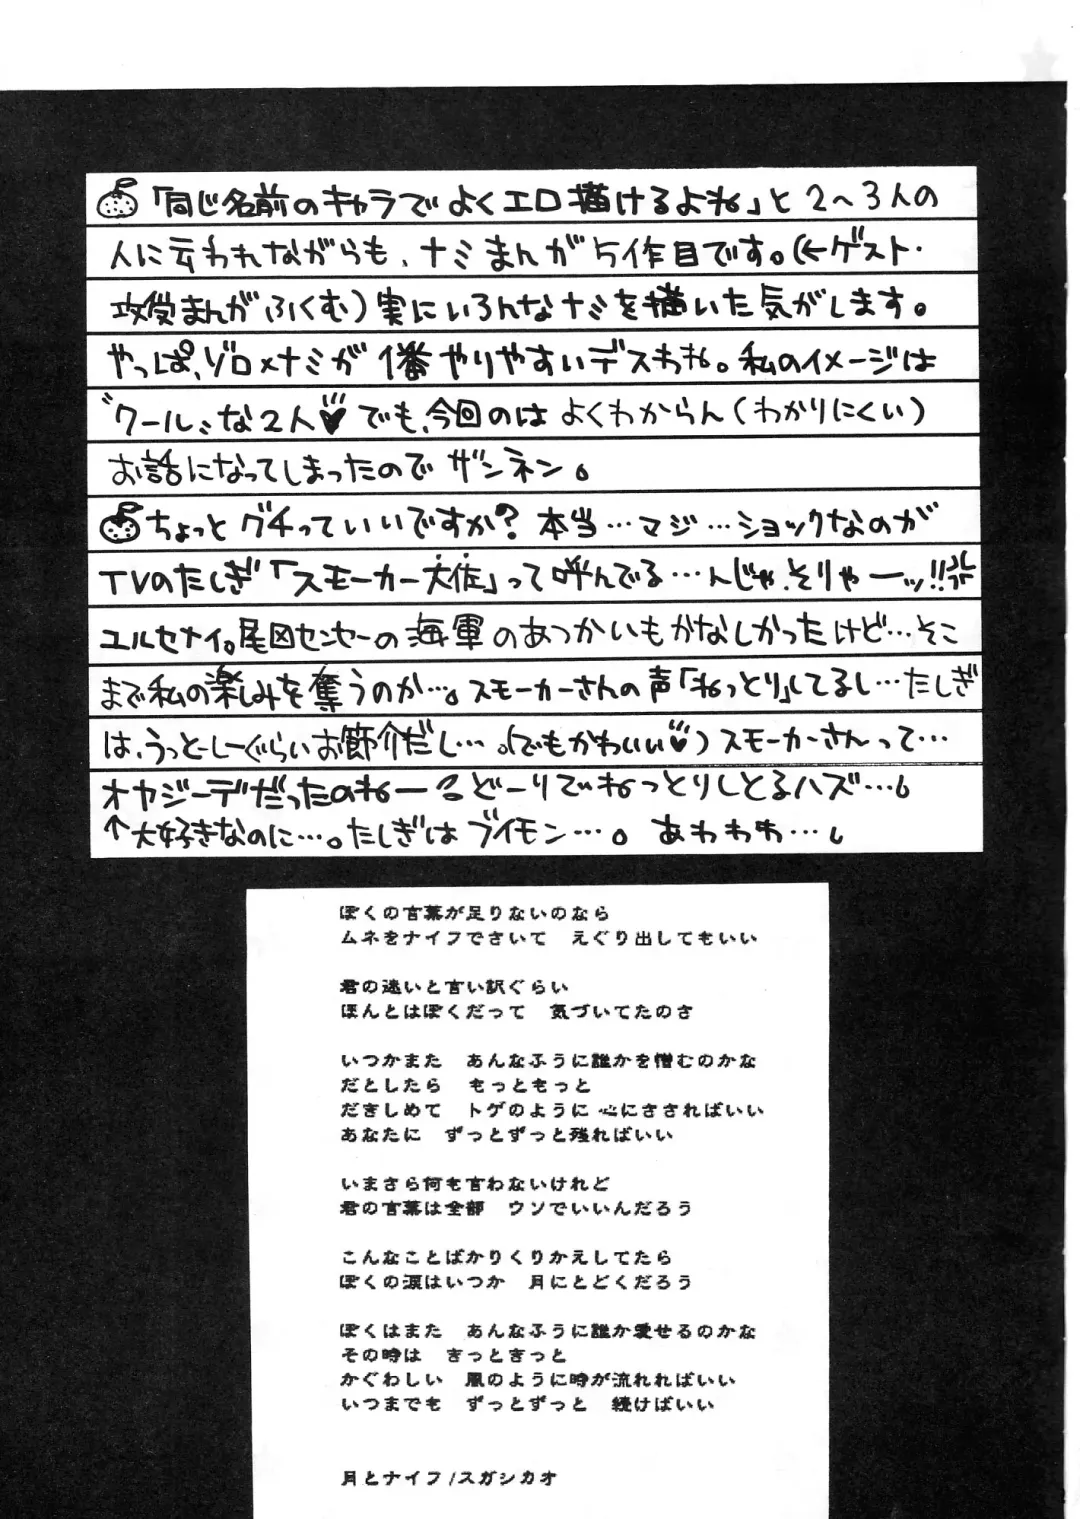 「同じ名前のキャラでよくエロ描けるよね」と2〜3人の
人に云われながらも、ナミまんが5作目です。(←ゲスト・
攻受まんがふくむ)実にいろんなナミを描いた気がします。
やっぱ、ゾロ×ナミが1番やりやすいデスわね。私のイメージは
〝クール〟な2人♥でも、今回のはよくわからん(わかりにくい)
お話になってしまったのでザンネン。
ちょっとグチっていいですか?本当…マジ…ショックなのが
TVのたしぎ「スモーカー大佐」って呼んでる…んじゃ、そりゃーッ!!
ユルセナイ。尾田センセーの海軍のあつかいもかなしかったけど…そこ
まで私の楽しみを奪うのか…。スモーカーさんの声「ねっとり」してるし…たしぎ
は、うっとーしーぐらいお節介だし…。(でもかわいい♥)スモーカーさんって…
オヤジーデだったのねー。どーりでねっとりしとるハズ…。
↑大好きなのに…。たしぎはブイモン…。あわわわ…。
ぼくの言葉が足りないのなら
ムネをナイフでさいて　えぐり出してもいい
君の迷いと言い訳ぐらい
ほんとはぼくだって　気づいてたのさ
いつかまた　あんなふうに誰かを憎むのかな
だとしたら　もっともっと
だきしめて　トゲのように心にさされればいい
あなたに　ずっとずっと残ればいい
いまさら何も言わないけれど
君の言葉は全部　ウソでいいんだろう
こんなことばかりくりかえしてたら
ぼくの涙はいつか　月にとどくだろう
ぼくはまた　あんなふうに誰か愛せるのかな
その時は　きっときっと
かぐわしい　風のように時が流れればいい
いつまでも　ずっとずっと　続けばいい
月とナイフ/スガシカオ